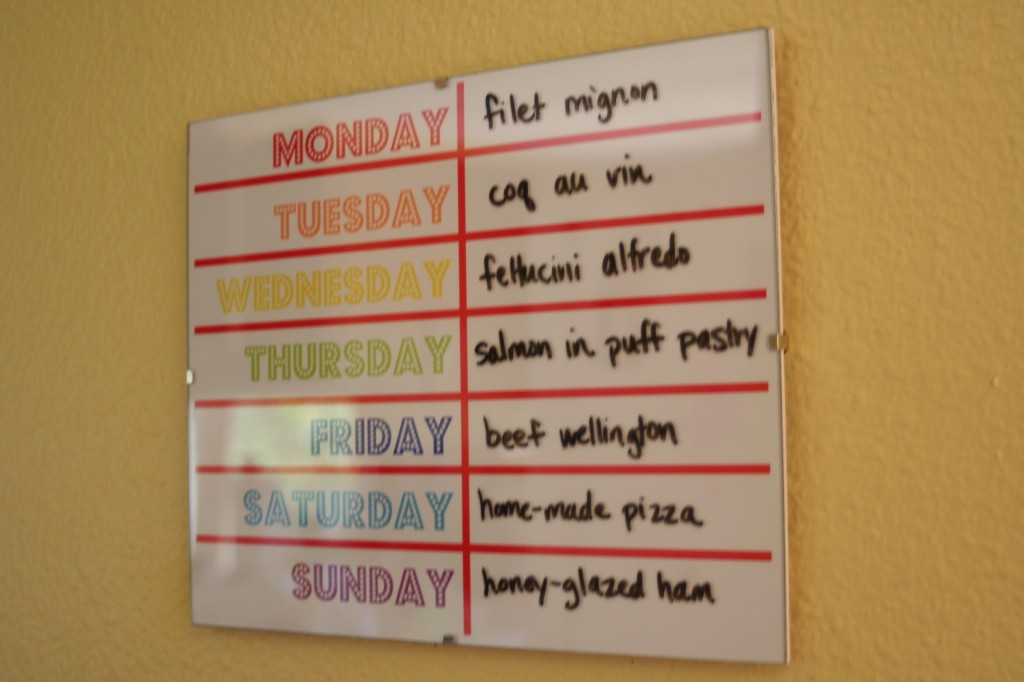 MONDAY filet mignon
TUESDAY coq au vin
WEDNESDAY fettucini alfredo
THURSDAY salmon in puff pastry
FRIDAY beef wellington
SATURDAY home-made pizza
SUNDAY honey-glazed ham